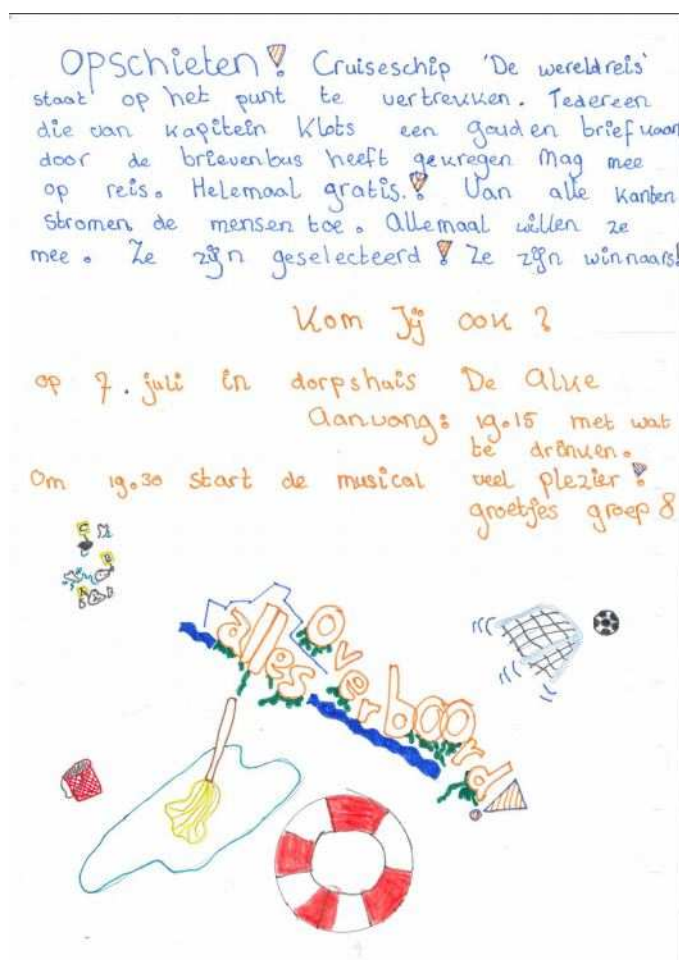 Opschieten! Cruiseschip 'De wereldreis'
staat op het punt te vertrekken. Iedereen
die van kapitein Klots een gouden briefkaart
door de brievenbus heeft gekregen mag mee
op reis. Helemaal gratis.! Van alle kanten
stromen de mensen toe. Allemaal willen ze
mee. Ze zijn geselecteerd! Ze zijn winnaars!
Kom Jij ook?
op 7. juli in dorpshuis De Alke
Aanvang: 19.15 met wat
te drinken.
Om 19.30 start de musical veel plezier!
groetjes groep 8
alles
Overboord!